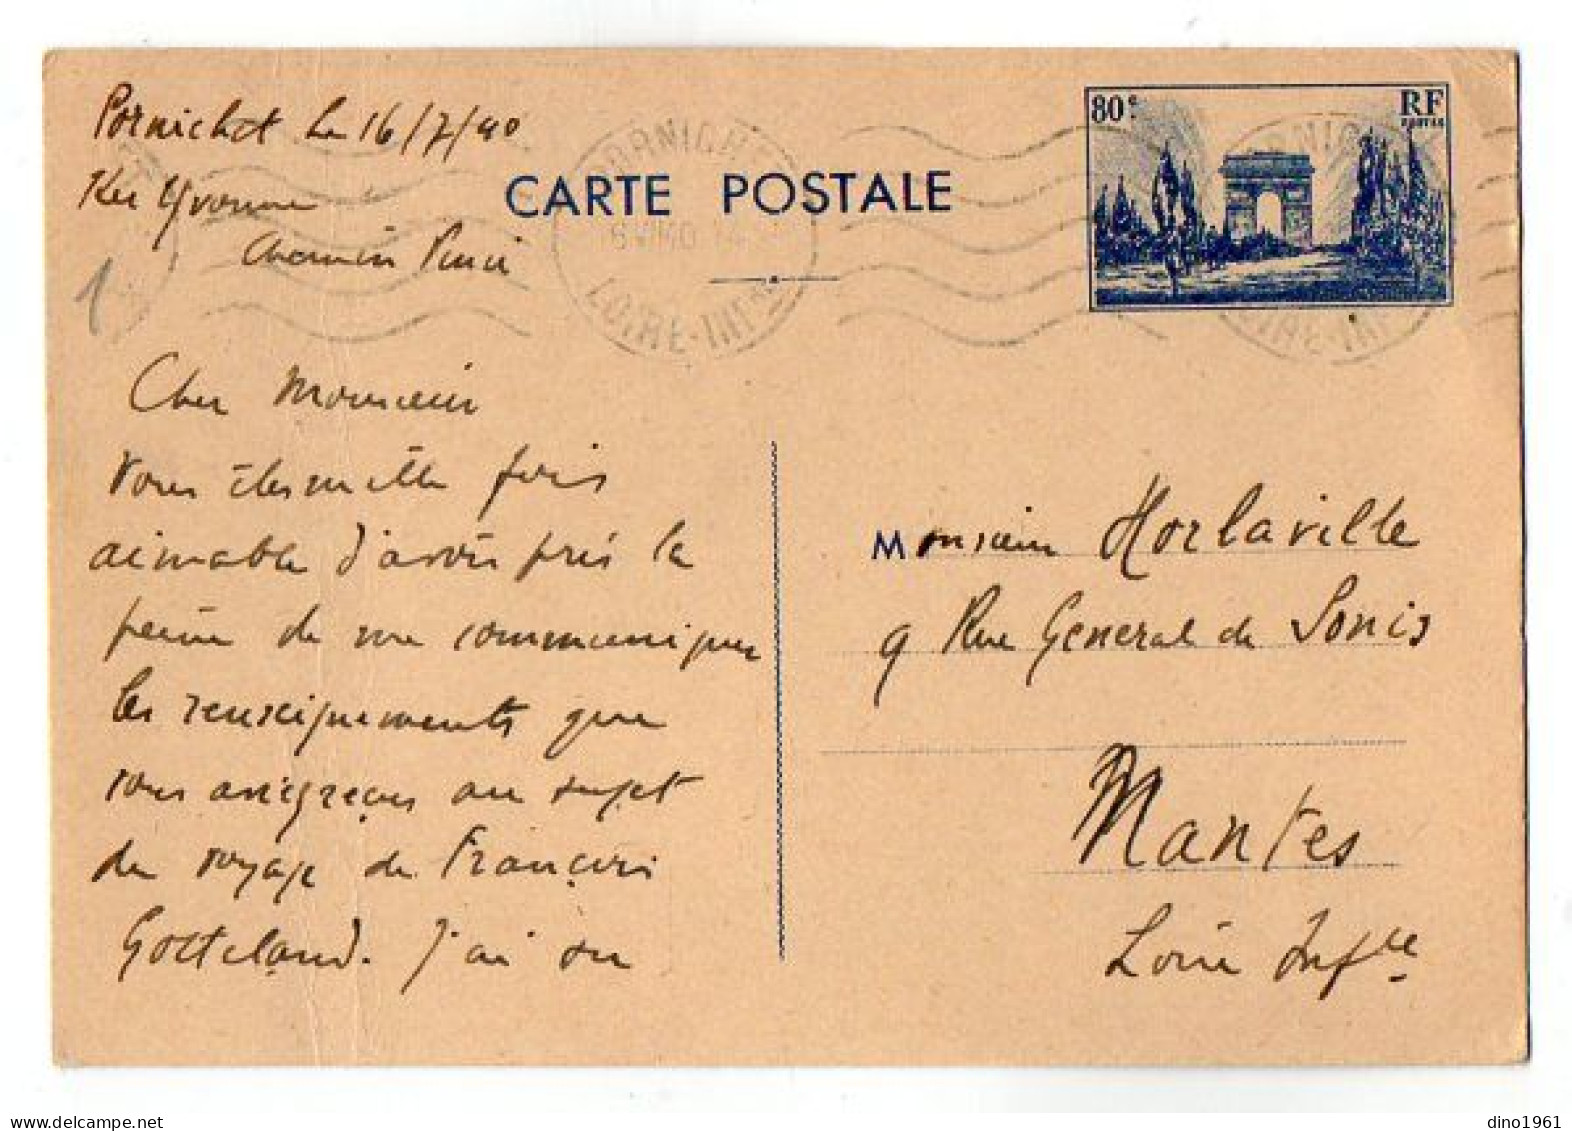 Pornichet le 16/7/40
Ker Yvonne
Chemin
80c
RF
POSTES
CARTE POSTALE
PORNICHET
LOIRE-INFre
Cher Monsieur
Vous êtes mille fois
aimable d'avoir pris la
peine de me communiquer
les renseignements que
vous au sujet
du voyage de François
Gotteland. J'ai su
Monsieur Horlaville
9 Rue General de Sonis
Nantes
Loire Infre
dino1961